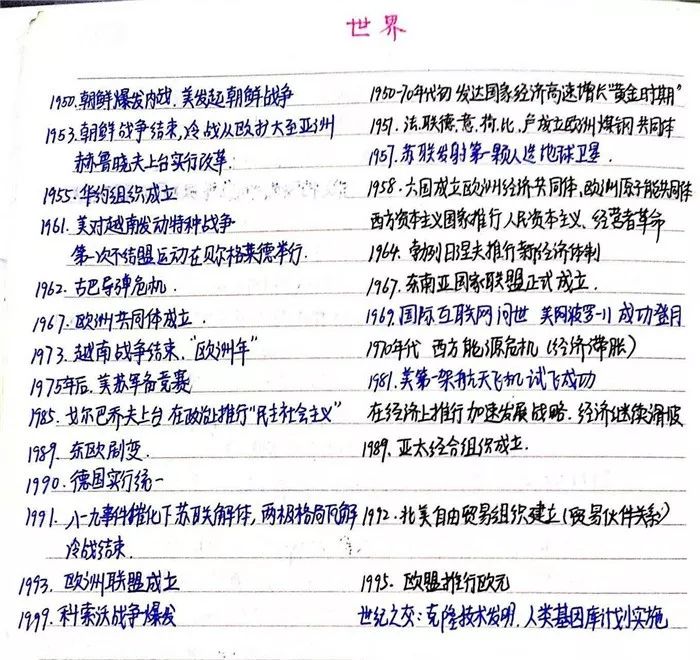 世界
1950.朝鲜爆发内战.美发起朝鲜战争
1950-70年代初 发达国家经济高速增长"黄金时期"
1953.朝鲜战争结束,冷战从欧扩大至亚洲
1951.法.联德.意.荷.比.卢成立欧洲煤钢共同体
赫鲁晓夫上台实行改革.
1957.苏联发射第一颗人造地球卫星.
1955.华约组织成立
1958.六国成立欧洲经济共同体,欧洲原子能共同体
1961.美对越南发动特种战争
西方资本主义国家推行人民资本主义、经营者革命
第一次不结盟运动在贝尔格莱德举行.
1964.勃列日涅夫推行新经济体制
1962.古巴导弹危机.
1967.东南亚国家联盟正式成立.
1967.欧洲共同体成立.
1969.国际互联网问世 美阿波罗-11 成功登月
1973.越南战争结束."欧洲年"
1970年代 西方能源危机(经济滞胀)
1975年后.美苏军备竞赛
1981.美第一架航天飞机试飞成功
1985.戈尔巴乔夫上台 在政治上推行"民主社会主义"
在经济上推行加速发展战略.经济继续滑坡
1989.东欧剧变.
1989.亚太经合组织成立.
1990.德国实行统一
1991.八一九事件催化下苏联解体,两极格局瓦解
1992.北美自由贸易组织建立(贸易伙伴关系)
冷战结束.
1993.欧洲联盟成立
1995.欧盟推行欧元
1999.科索沃战争爆发
世纪之交:克隆技术发明.人类基因库计划实施